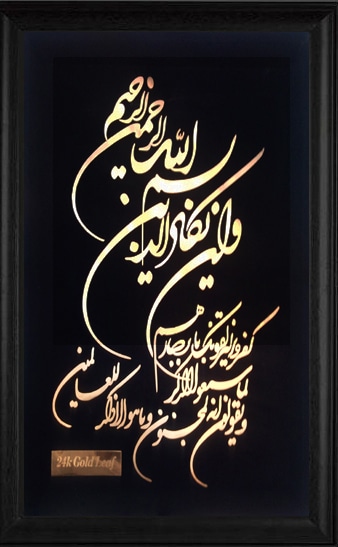 بسم الله الرحمن الرحیم
وان یکاد الذین
کفروا لیزلقونک بابصارهم
لما سمعوا الذکر
و یقولون انه لمجنون و ما هو الا ذکر للعالمین
24k Gold Leaf